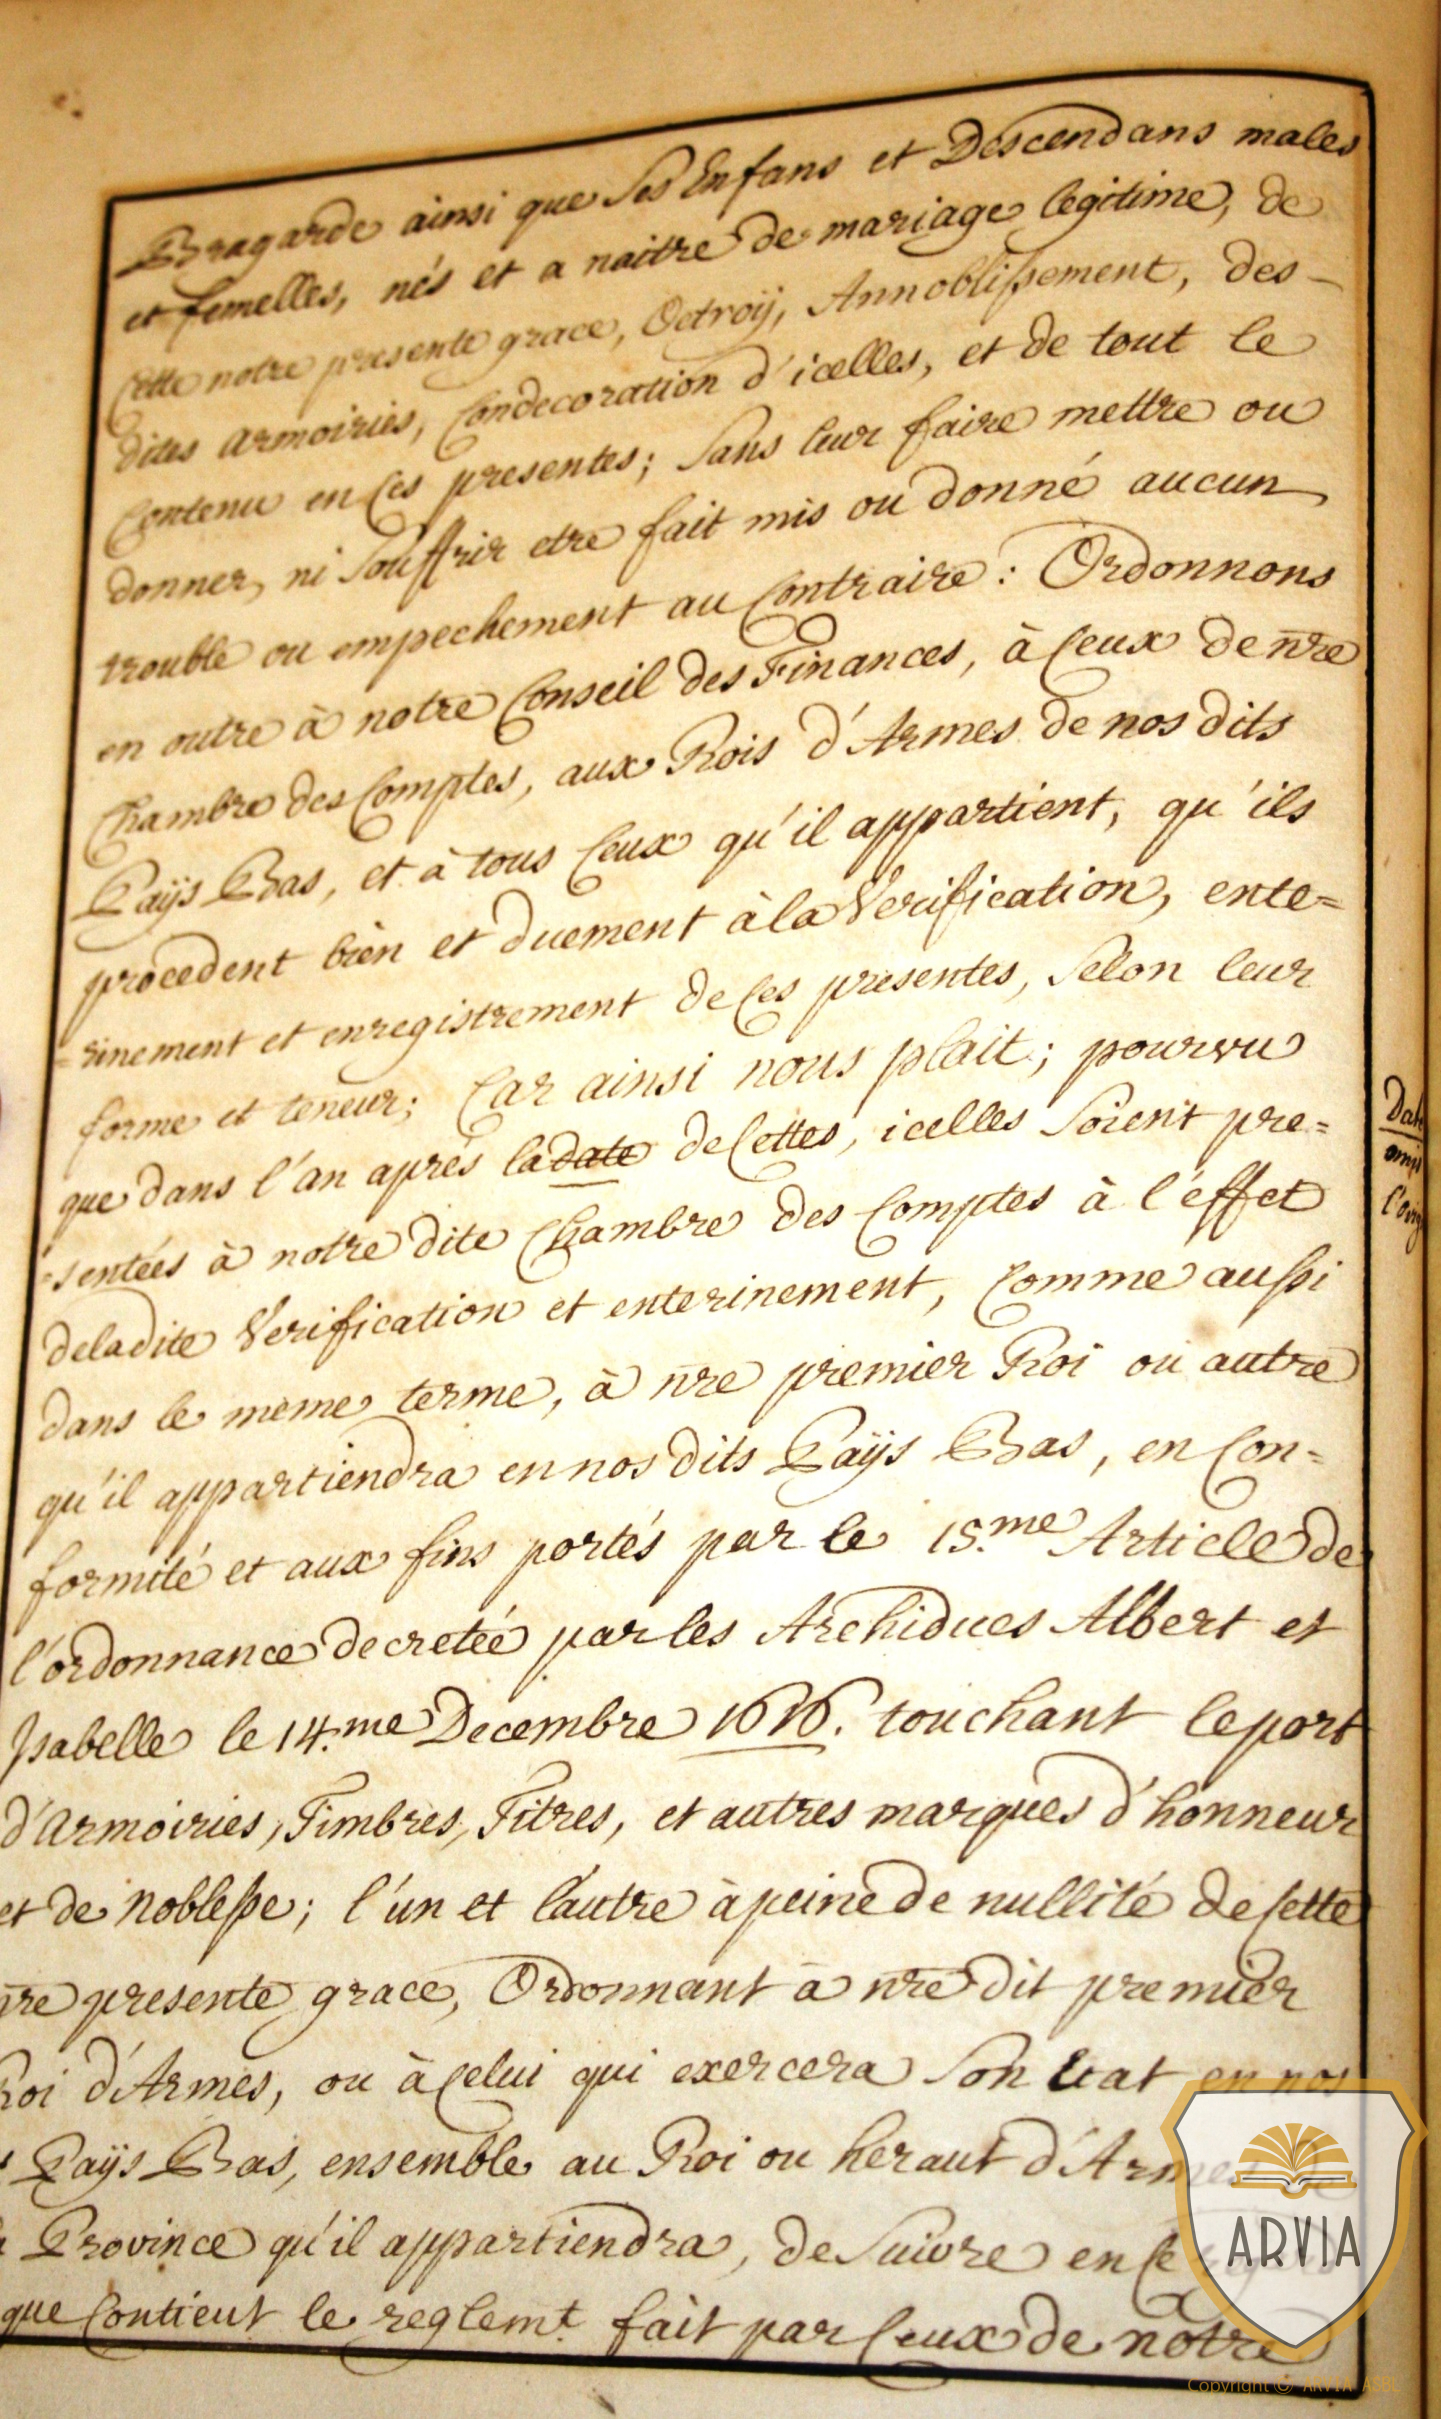 Bragarde ainsi que ses Enfans et Descendans males
et femelles, nés et a naitre de mariage legitime, de
Cette notre presente grace, Octroÿ, Annoblissement, des-
dites armoiries, Condecoration d'icelles, et de tout le
Contenu en Ces presentes; Sans leur faire mettre ou
donner, ni Souffrir etre fait mis ou donné aucun
trouble ou empechement au Contraire: Ordonnons
en outre à notre Conseil des Finances, à Ceux de nr̃e
Chambre des Comptes, aux Rois d'Armes de nos dits
Païjs Bas, et à tous Ceux qu'il appartient, qu'ils
procedent bien et duement à la Verification, ente=
=rinement et enregistrement de Ces presentes, Selon leur
forme et teneur; Car ainsi nous plait; pourvu
que dans l'an aprés la date de Cettes, icelles Soient pre=
=sentées à notre dite Chambre des Comptes à l'effet
de ladite Verification et enterinement, Comme aussi
dans le meme terme, à nr̃e premier Roi ou autre
qu'il appartiendra en nos dits Païjs Bas, en Con=
formité et aux fins portés par le 15.me Article de
l'ordonnance decretée par les Archiducs Albert et
Isabelle le 14.me Decembre 1616. touchant le port
d'Armoiries, Timbres, Titres, et autres marques d'honneur
et de Noblesse; l'un et l'autre à peine de nullité de Cette
nr̃e presente grace, Ordonnant à nr̃e dit premier
Roi d'Armes, ou à Celui qui exercera Son Etat en nos
Païjs Bas, ensemble au Roi ou heraut d'Armes
Province qu'il appartiendra, de Suivre en Ce
que Contient le reglemt. fait par Ceux de notre
Dat
omis
l'orig
ARVIA
Copyright © ARVIA ASBL